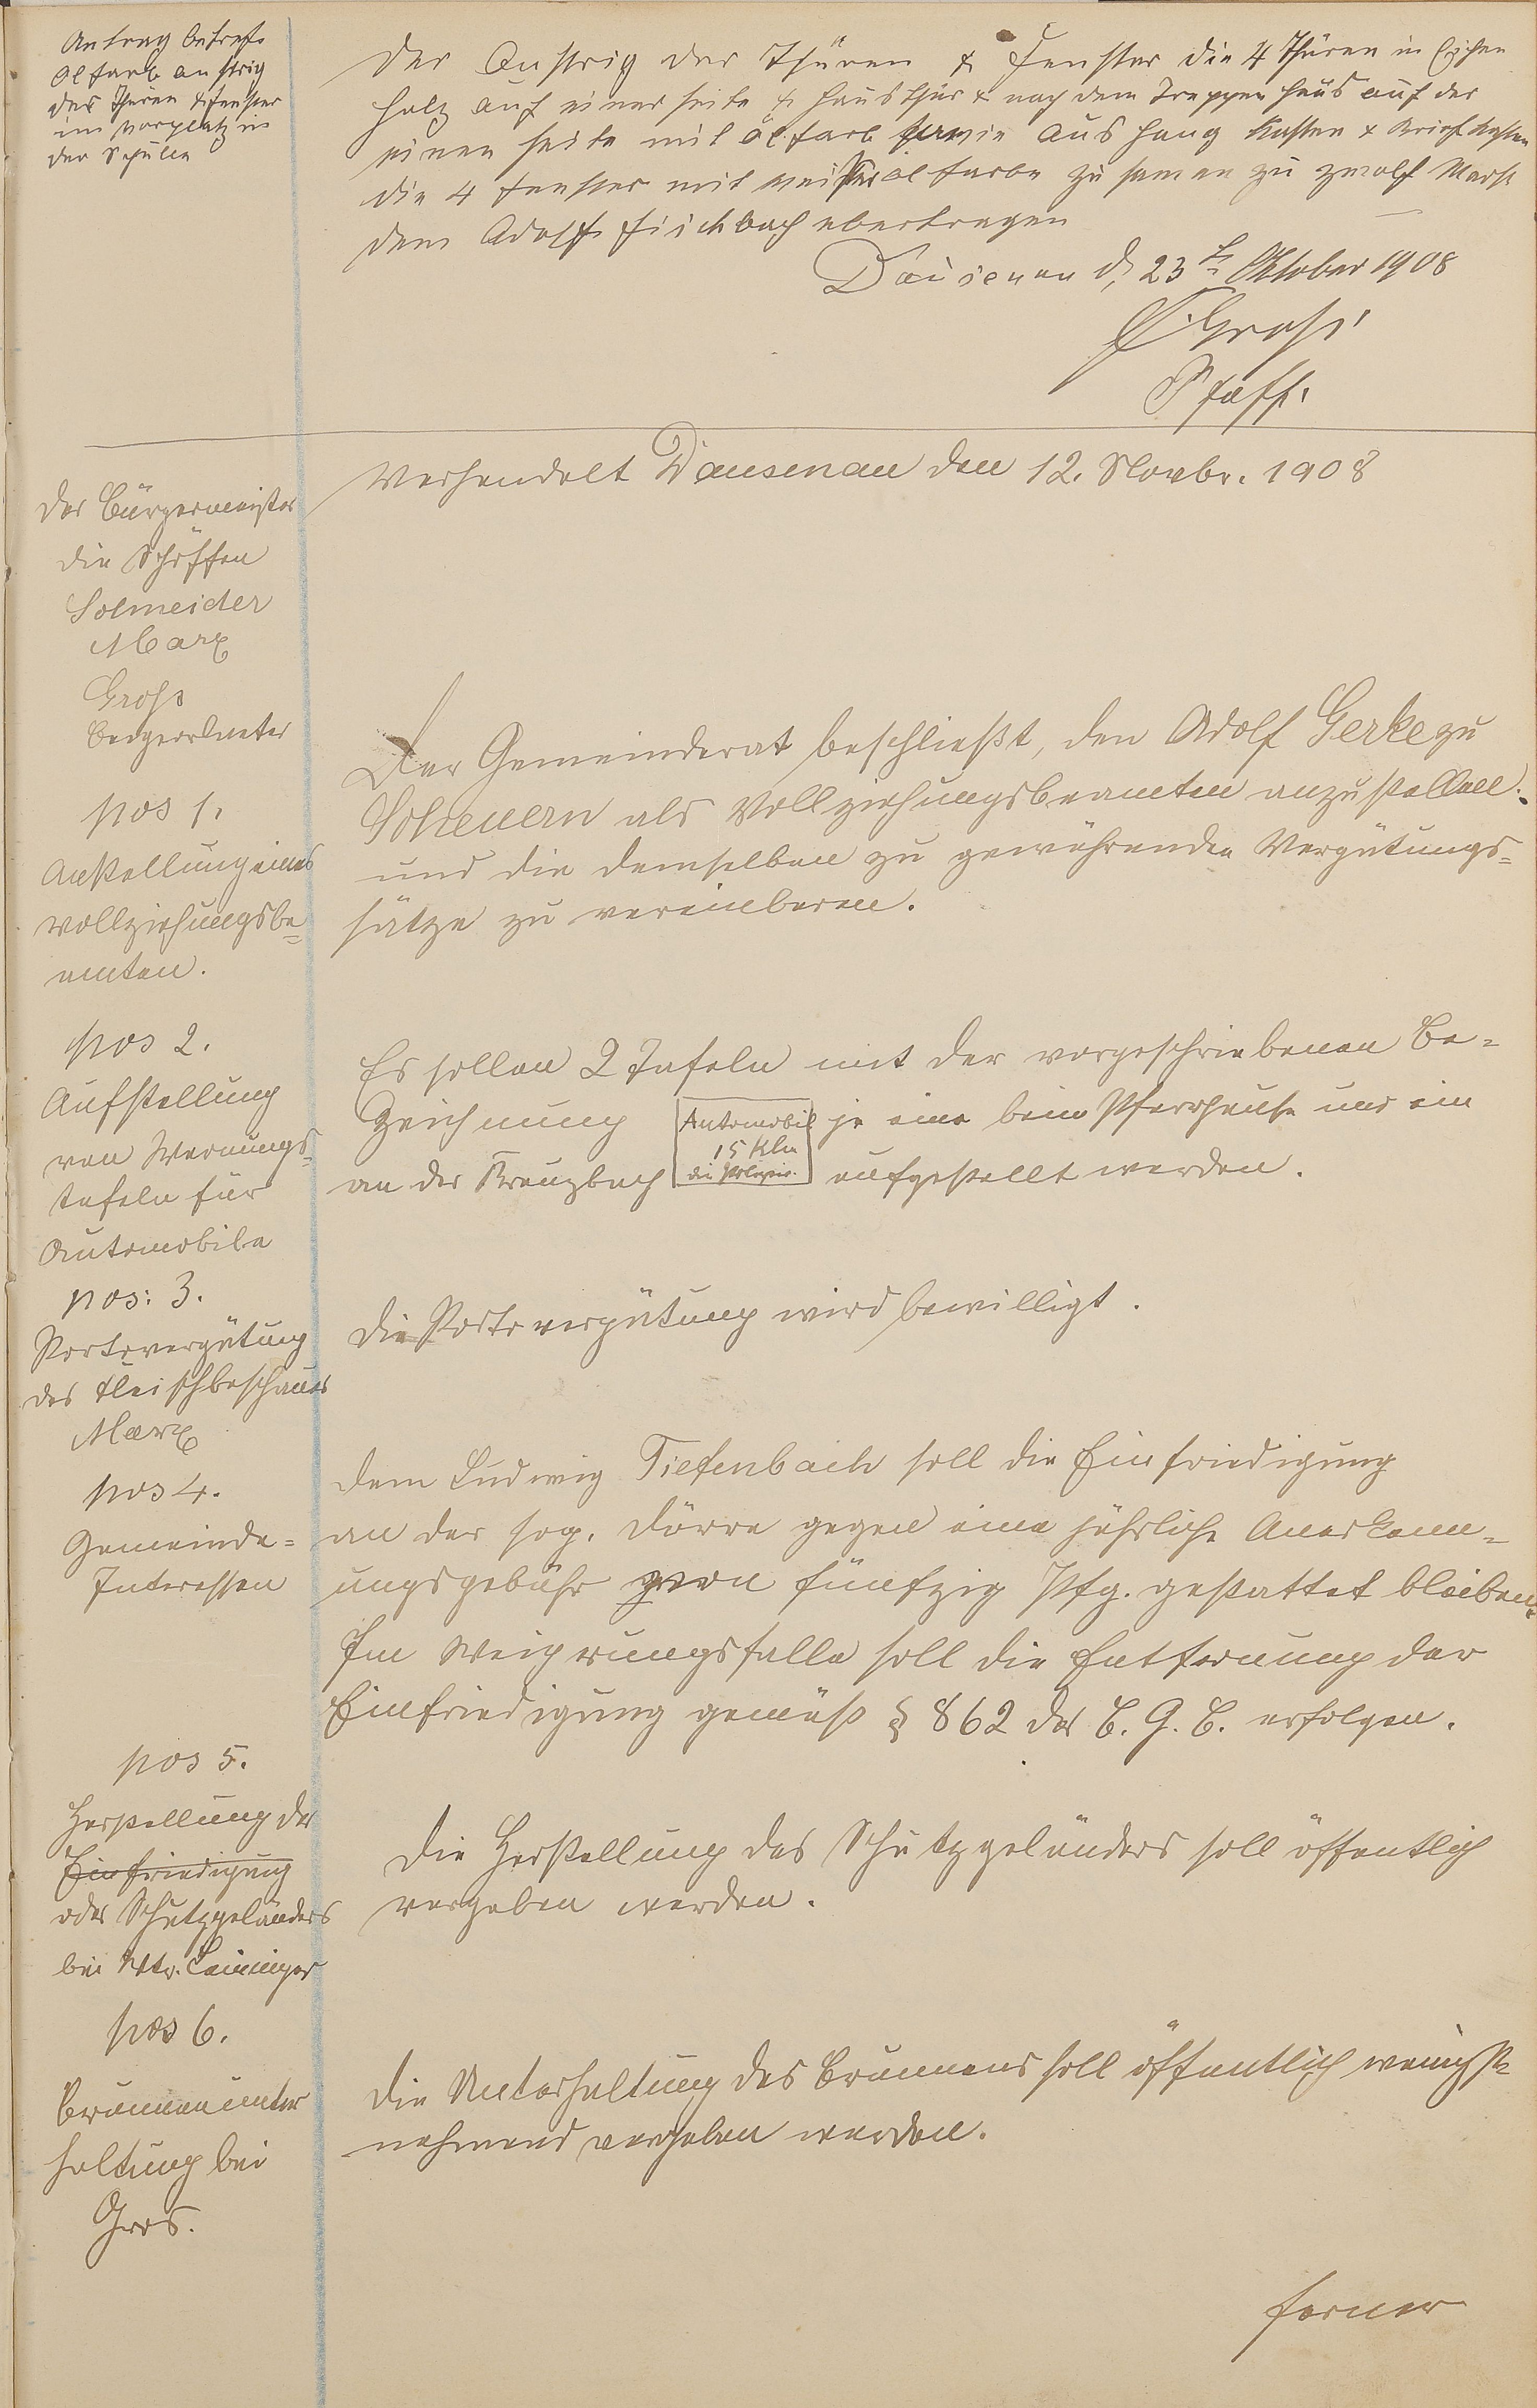 Antrag betrefs
Ölfarb anstrig
der Thüren & Fenster
im Vorplatz in
der Schule
der Anstrig der Thüren & Fenster die 4 Thüren in Eichen
holz auf einer seite & hausthür & nach dem Treppenhaus auf der
einen seite mit ölfarb sowie aushang Kasten & Briefkasten
die 4 Fenster mit weißer ölfarbe zu samen zu zwolf Mark
dem Adolf Fischbach übertragen
Dausenau d, 23t Oktober 1908
Gross
Pfaff.
Verhandelt Dausenau den 12. Novbr. 1908
Der Bürgermeister
die Schöffen
Schneider
Marx
Gross
Beigeordneter
pos 1.
Anstellung eines
Vollziehungsbe=
amten.
Der Gemeinderat beschließt, den Adolf Gerke zu
Scheuern als Vollziehungsbeamten anzustellen.
und die demselben zu gewährenden Vergütungs=
sätze zu vereinbaren.
pos 2.
Aufstellung
von Warnungs=
tafeln für
Automobile
Es sollen 2 Tafeln mit der vorgeschriebenen Be=
zeichnung Automobil je eine beim Pfarrhause und ein
15 Klm
die Polizeiv.
an der Kreuzbach aufgestellt werden.
pos: 3.
Portovergütung
des Fleischbeschauers
Marx
Die Portovergütung wird bewilligt.
pos 4.
Gemeinde=
Interessen
Dem Ludwig Tiefenbach soll die Einfriedigung
an der sog. Dörre gegen eine jährliche Anerkenn=
ungsgebühr von fünfzig Pfg. gestattet bleiben.
Im Weigerungsfalle soll die Entfernung der
Einfriedigung gemäß § 862 des B. G. B. erfolgen.
pos 5.
Herstellung der
Einfriedigung
oder Schutzgeländers
bei Wtw. Leininger
Die Herstellung des Schutzgeländers soll öffentlich
vergeben werden.
pos 6.
Brunnenunter
haltung bei
Gros.
Die Unterhaltung des Brunnens soll öffentlich wenigst
nehmend vergeben werden.
ferner